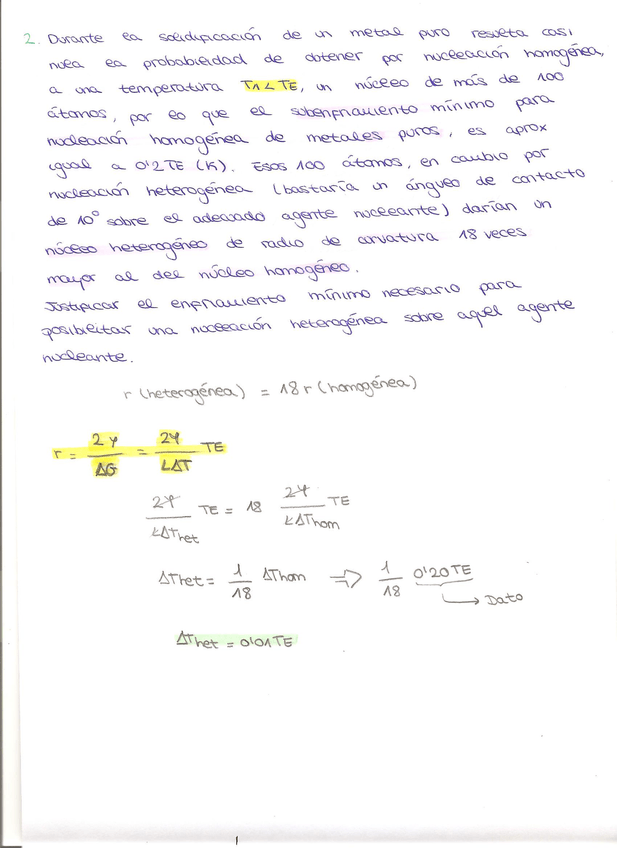 2. Durante la solidificación de un metal puro resulta casi
nula la probabilidad de obtener por nucleación homogénea,
a una temperatura T1 < TE, un núcleo de más de 100
átomos, por lo que el subenfriamiento mínimo para
nucleación homogénea de metales puros, es aprox
igual a 0'2TE (K). Esos 100 átomos, en cambio por
nucleación heterogénea (bastaría un ángulo de contacto
de 10° sobre el adecuado agente nucleante) darían un
núcleo heterogéneo de radio de curvatura 18 veces
mayor al del núcleo homogéneo.
Justificar el enfriamiento mínimo necesario para
posibilitar una nucleación heterogénea sobre aquel agente
nucleante.
r (heterogénea) = 18 r (homogénea)
r = 2γ/ΔG = 2γ/LΔT TE
2γ/LΔThet TE = 18 2γ/LΔThom TE
ΔThet = 1/18 ΔThom => 1/18 0'20TE
Dato
ΔThet = 0'01TE